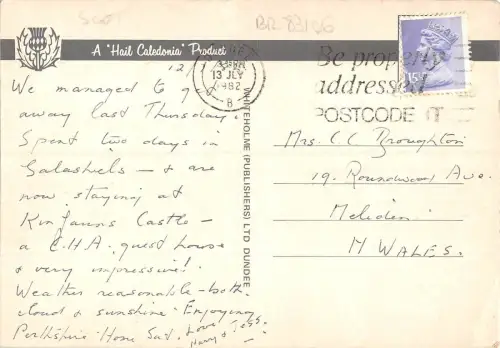 SCOT
BR 83156
A "Hail Caledonia" Product
13 JLY
1982
B
Be properly
addressed
POSTCODE IT
15
12
We managed to get
away last Thursday.
Spent two days in
Galashiels - & are
now staying at
Kinfauns Castle -
a C.H.A. guest house
& very impressive!
Weather reasonable - both
cloud & sunshine. Enjoying
Perthshire. Home Sat. Love
WHITEHOLME (PUBLISHERS) LTD DUNDEE
Mrs. C. C. Broughton
19. Roundwood Ave.
Meliden.
N WALES.